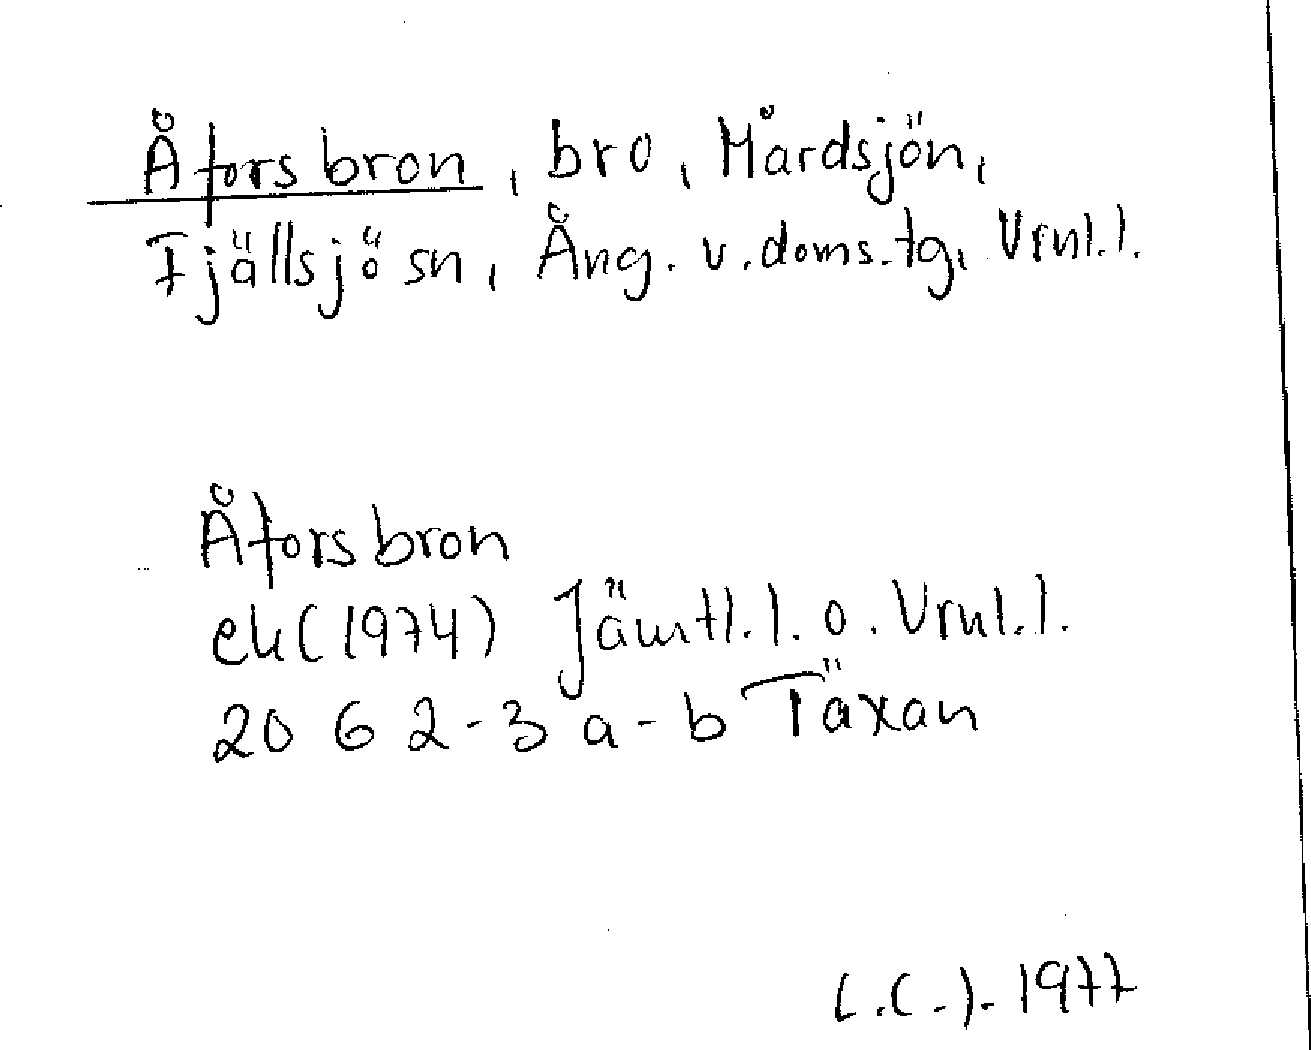 Åforsbron, bro, Mårdsjön,
Fjällsjö sn, Ång. v. doms. tg, Vrnl.l.
Åforsbron
ek (1974) Jämtl.l. o. Vrnl.l.
20 G 2-3 a-b Täxan
1977